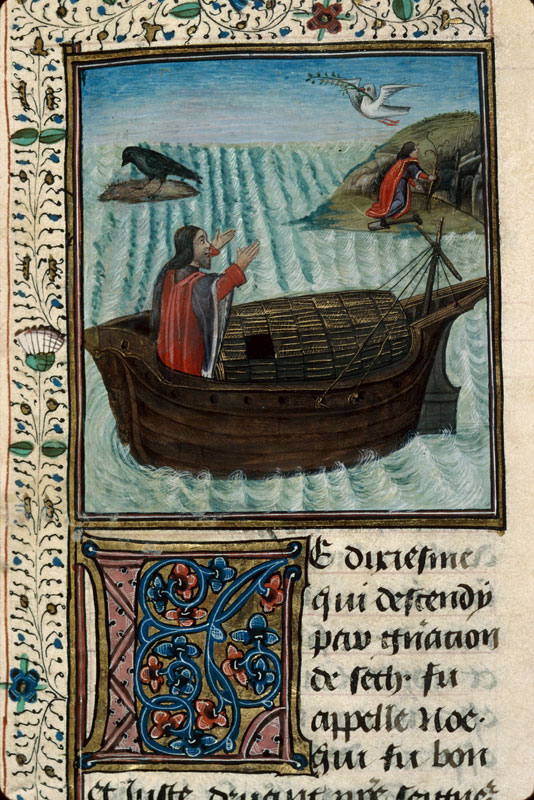 LE dixiesme
qui descendy
par gñacion
de seth. fu
appelle Noe.
qui fu bon
et Juste deuant